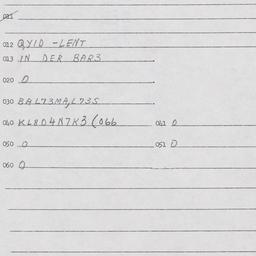 011
012 QYID -LENT
013 IN DER BAR3
020 0
030 BAL73MA,L73S
040 KL8D4N7K3(066 041 0
050 0 051 0
060 0